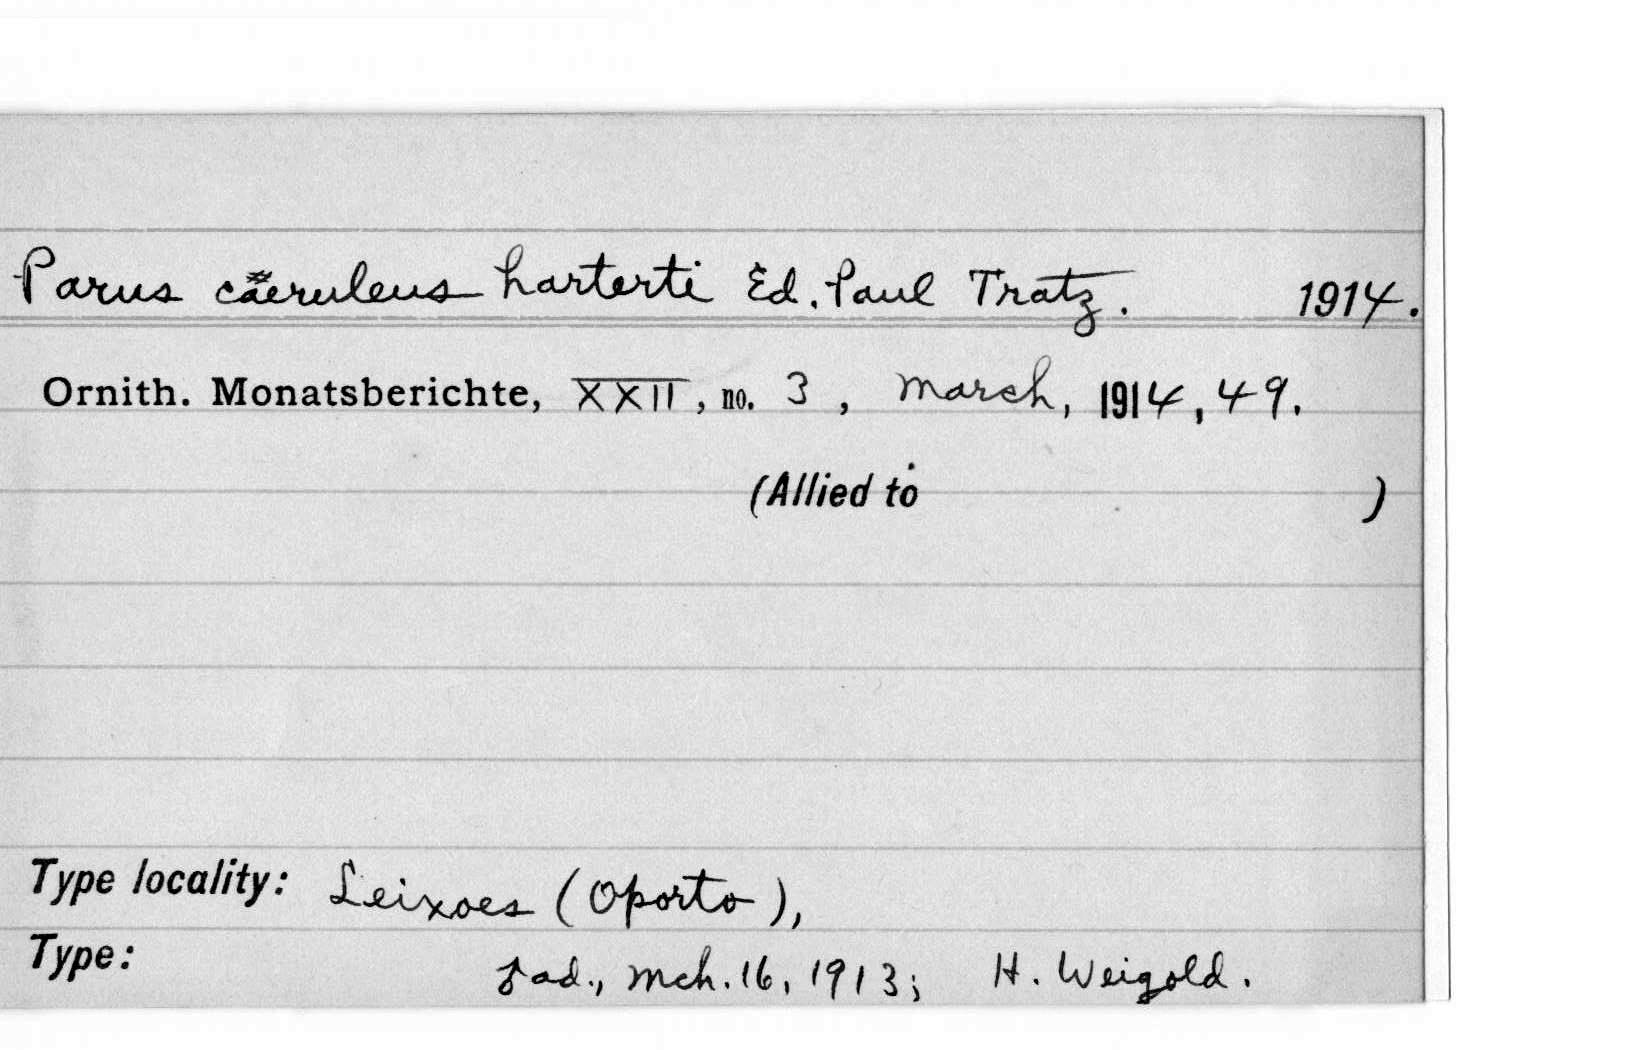 Parus caeruleus harterti Ed. Paul Tratz. 1914.
Ornith. Monatsberichte, XXII, no. 3, March, 1914, 49.
(Allied to )
Type locality: Leixoes (Oporto),
Type: ad., Mch. 16, 1913; H. Weigold.